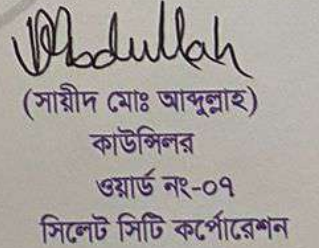 Abdullah
(সায়ীদ মোঃ আব্দুল্লাহ)
কাউন্সিলর
ওয়ার্ড নং-০৭
সিলেট সিটি কর্পোরেশন